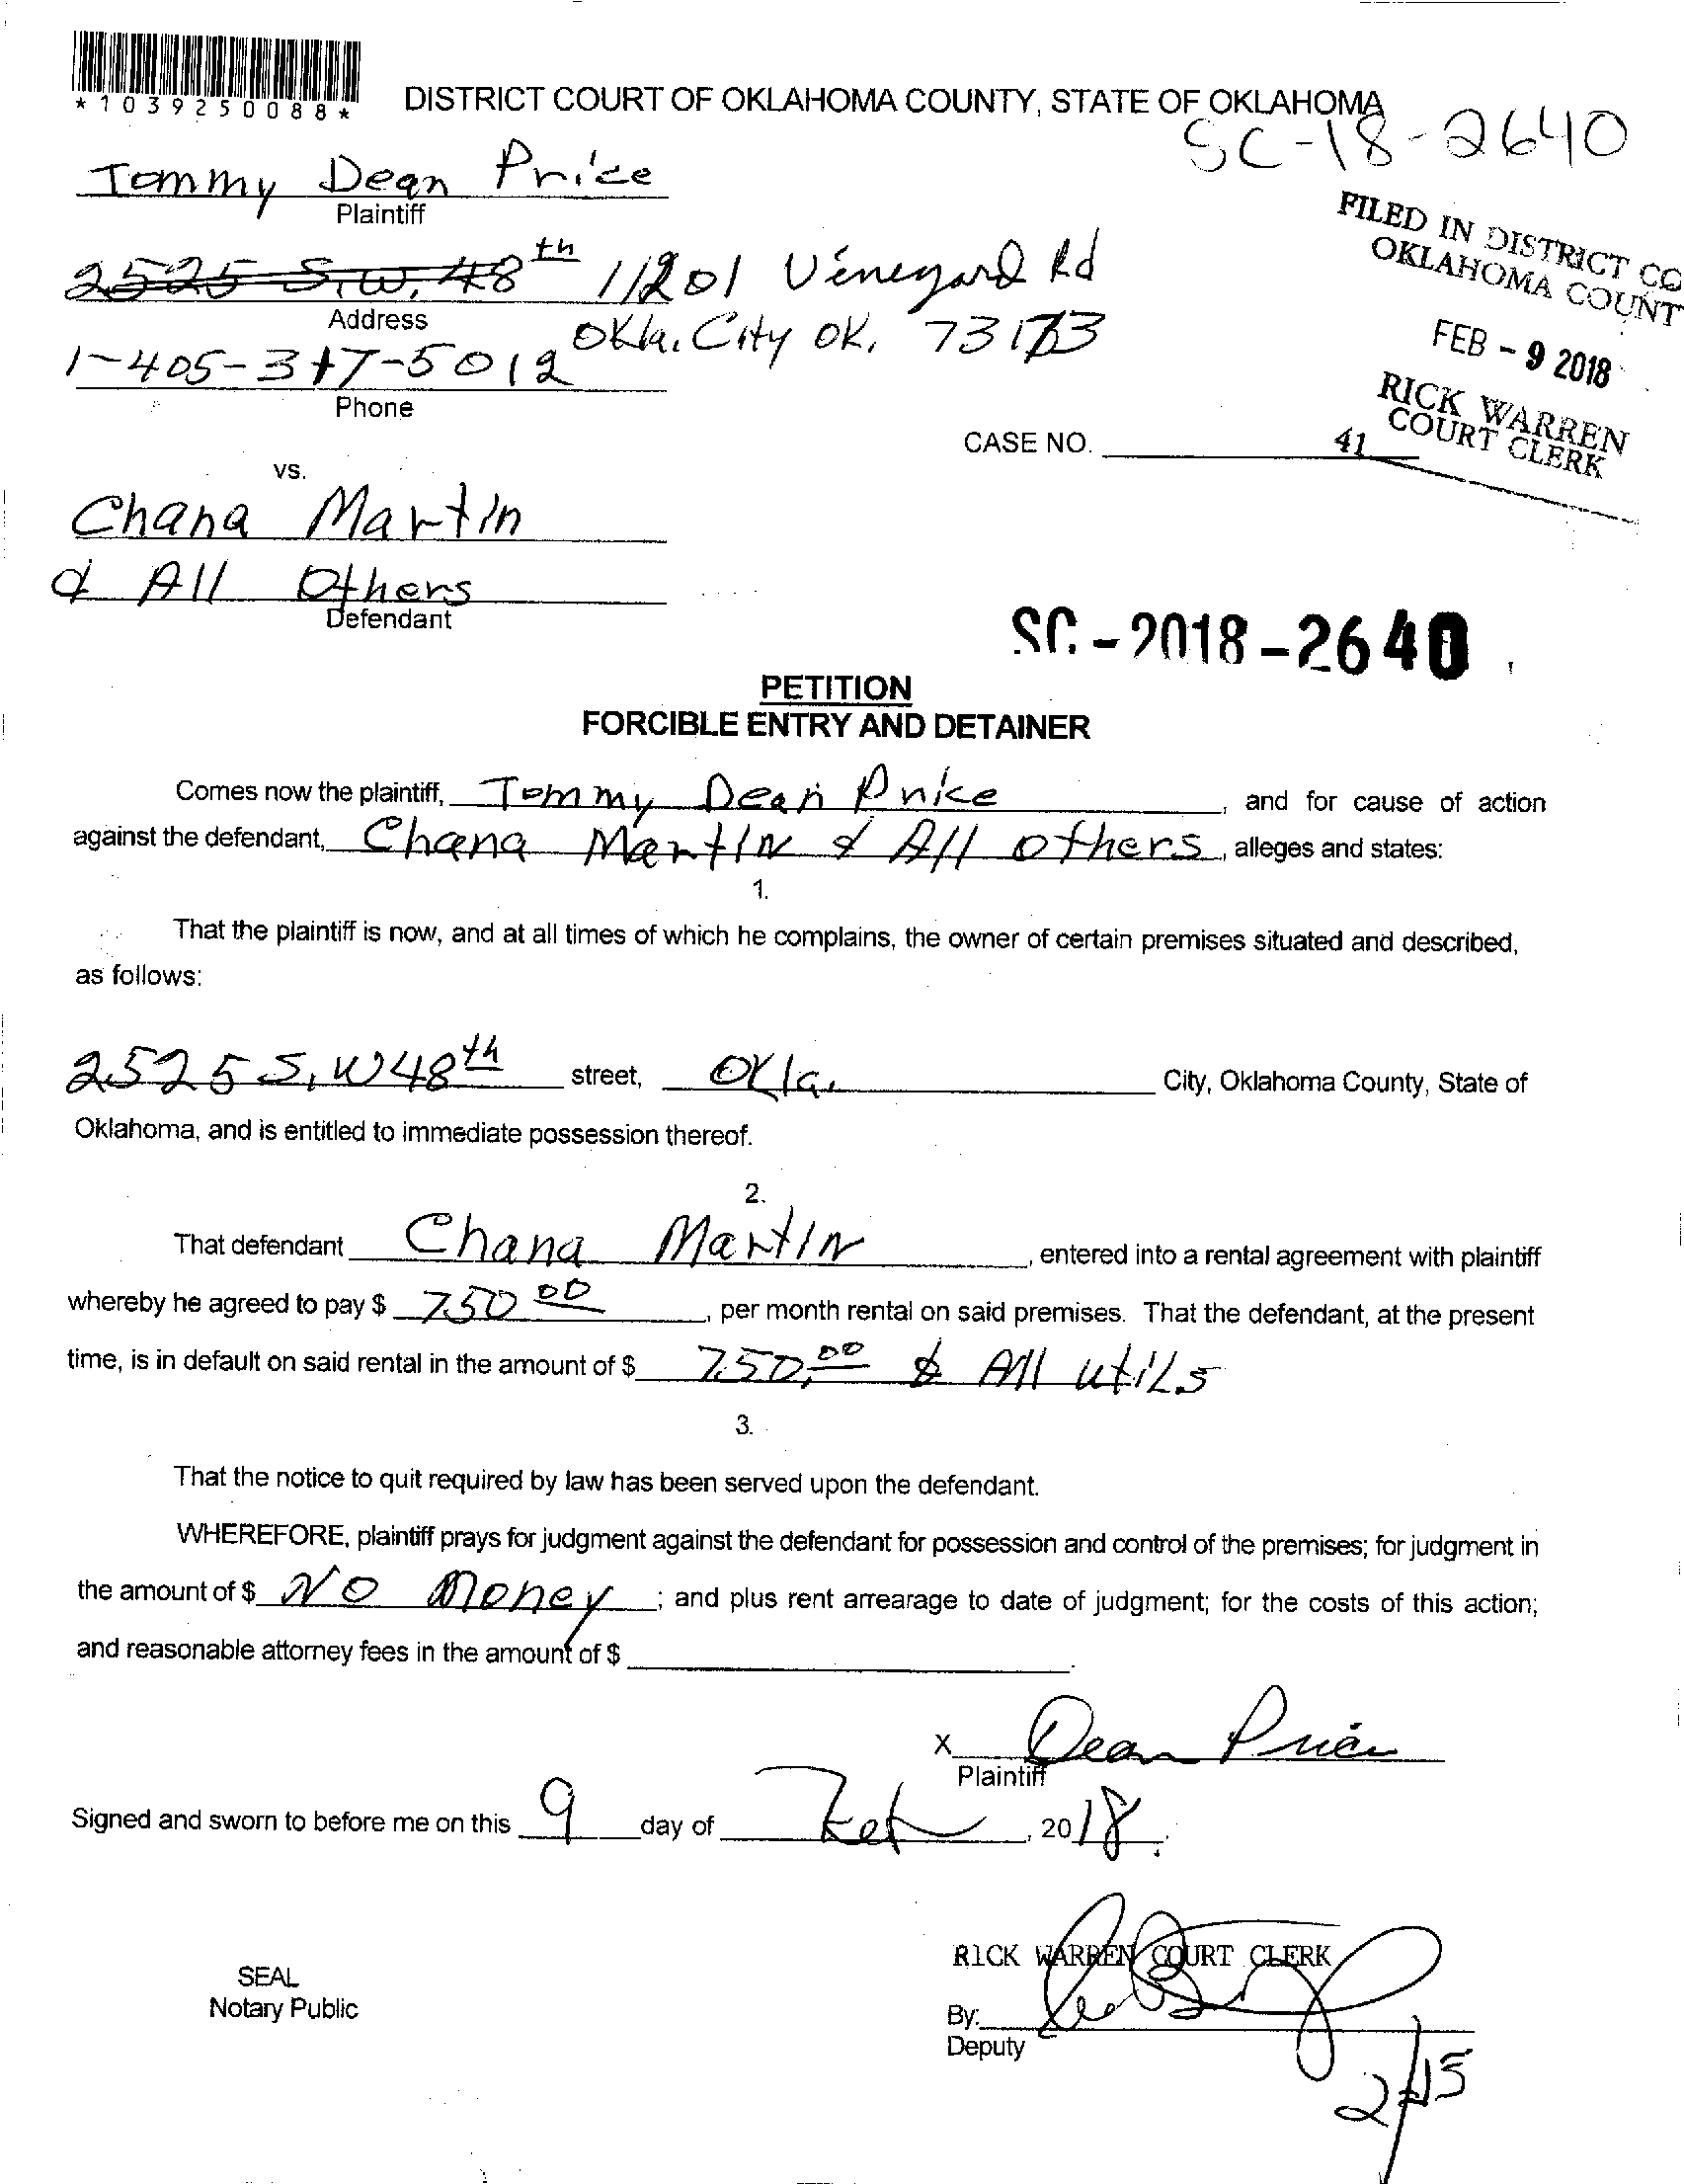 *1039250088*
DISTRICT COURT OF OKLAHOMA COUNTY, STATE OF OKLAHOMA
SC-18-2640
Tommy Dean Price
Plaintiff
FILED IN DISTRICT CO
OKLAHOMA COUNT
2525 S.W. 48th 11201 Vineyard Rd
Address
Okla. City OK. 73173
FEB - 9 2018
1-405-317-5012
Phone
RICK WARREN
COURT CLERK
CASE NO.
41
vs.
Chana Martin
& All Others
Defendant
SC - 2018 - 2640
PETITION
FORCIBLE ENTRY AND DETAINER
Comes now the plaintiff, Tommy Dean Price, and for cause of action
against the defendant, Chana Martin & All others, alleges and states:
1.
That the plaintiff is now, and at all times of which he complains, the owner of certain premises situated and described,
as follows:
2525 S. W 48th street, Okla. City, Oklahoma County, State of
Oklahoma, and is entitled to immediate possession thereof.
2.
That defendant Chana Martin, entered into a rental agreement with plaintiff
whereby he agreed to pay $ 750 00, per month rental on said premises. That the defendant, at the present
time, is in default on said rental in the amount of $ 750.00 & All utils
3.
That the notice to quit required by law has been served upon the defendant.
WHEREFORE, plaintiff prays for judgment against the defendant for possession and control of the premises; for judgment in
the amount of $ NO Money; and plus rent arrearage to date of judgment; for the costs of this action;
and reasonable attorney fees in the amount of $
X Dean Price
Plaintiff
Signed and sworn to before me on this 9 day of Feb, 2018.
RICK WARREN COURT CLERK
SEAL
Notary Public
By:
Deputy
2/15